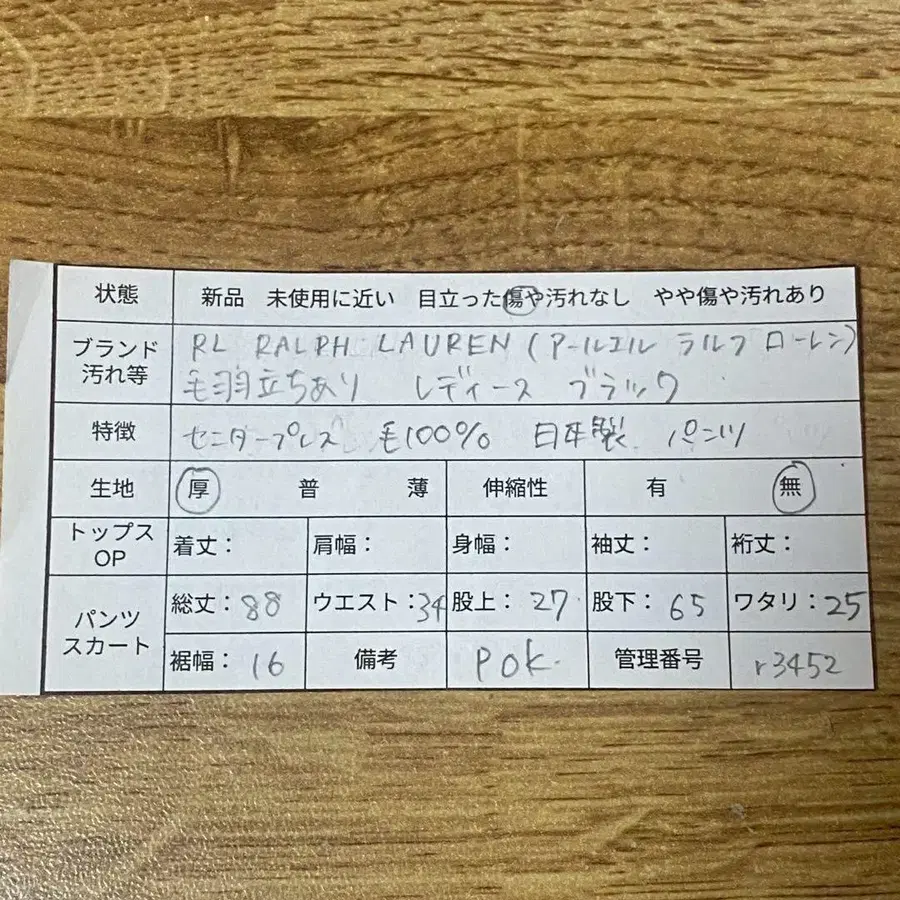 状態 新品 未使用に近い 目立った傷や汚れなし やや傷や汚れあり
ブランド RL RALPH LAUREN (アールエル ラルフ ローレン)
汚れ等 毛羽立ちあり レディース ブラック
特徴 センタープレス 毛100% 日本製 パンツ
生地 厚 普 薄 伸縮性 有 無
トップス
OP 着丈: 肩幅: 身幅: 袖丈: 裄丈:
パンツ
スカート
総丈:88 ウエスト:34 股上:27 股下:65 ワタリ:25
裾幅:16 備考 POK. 管理番号 r3452